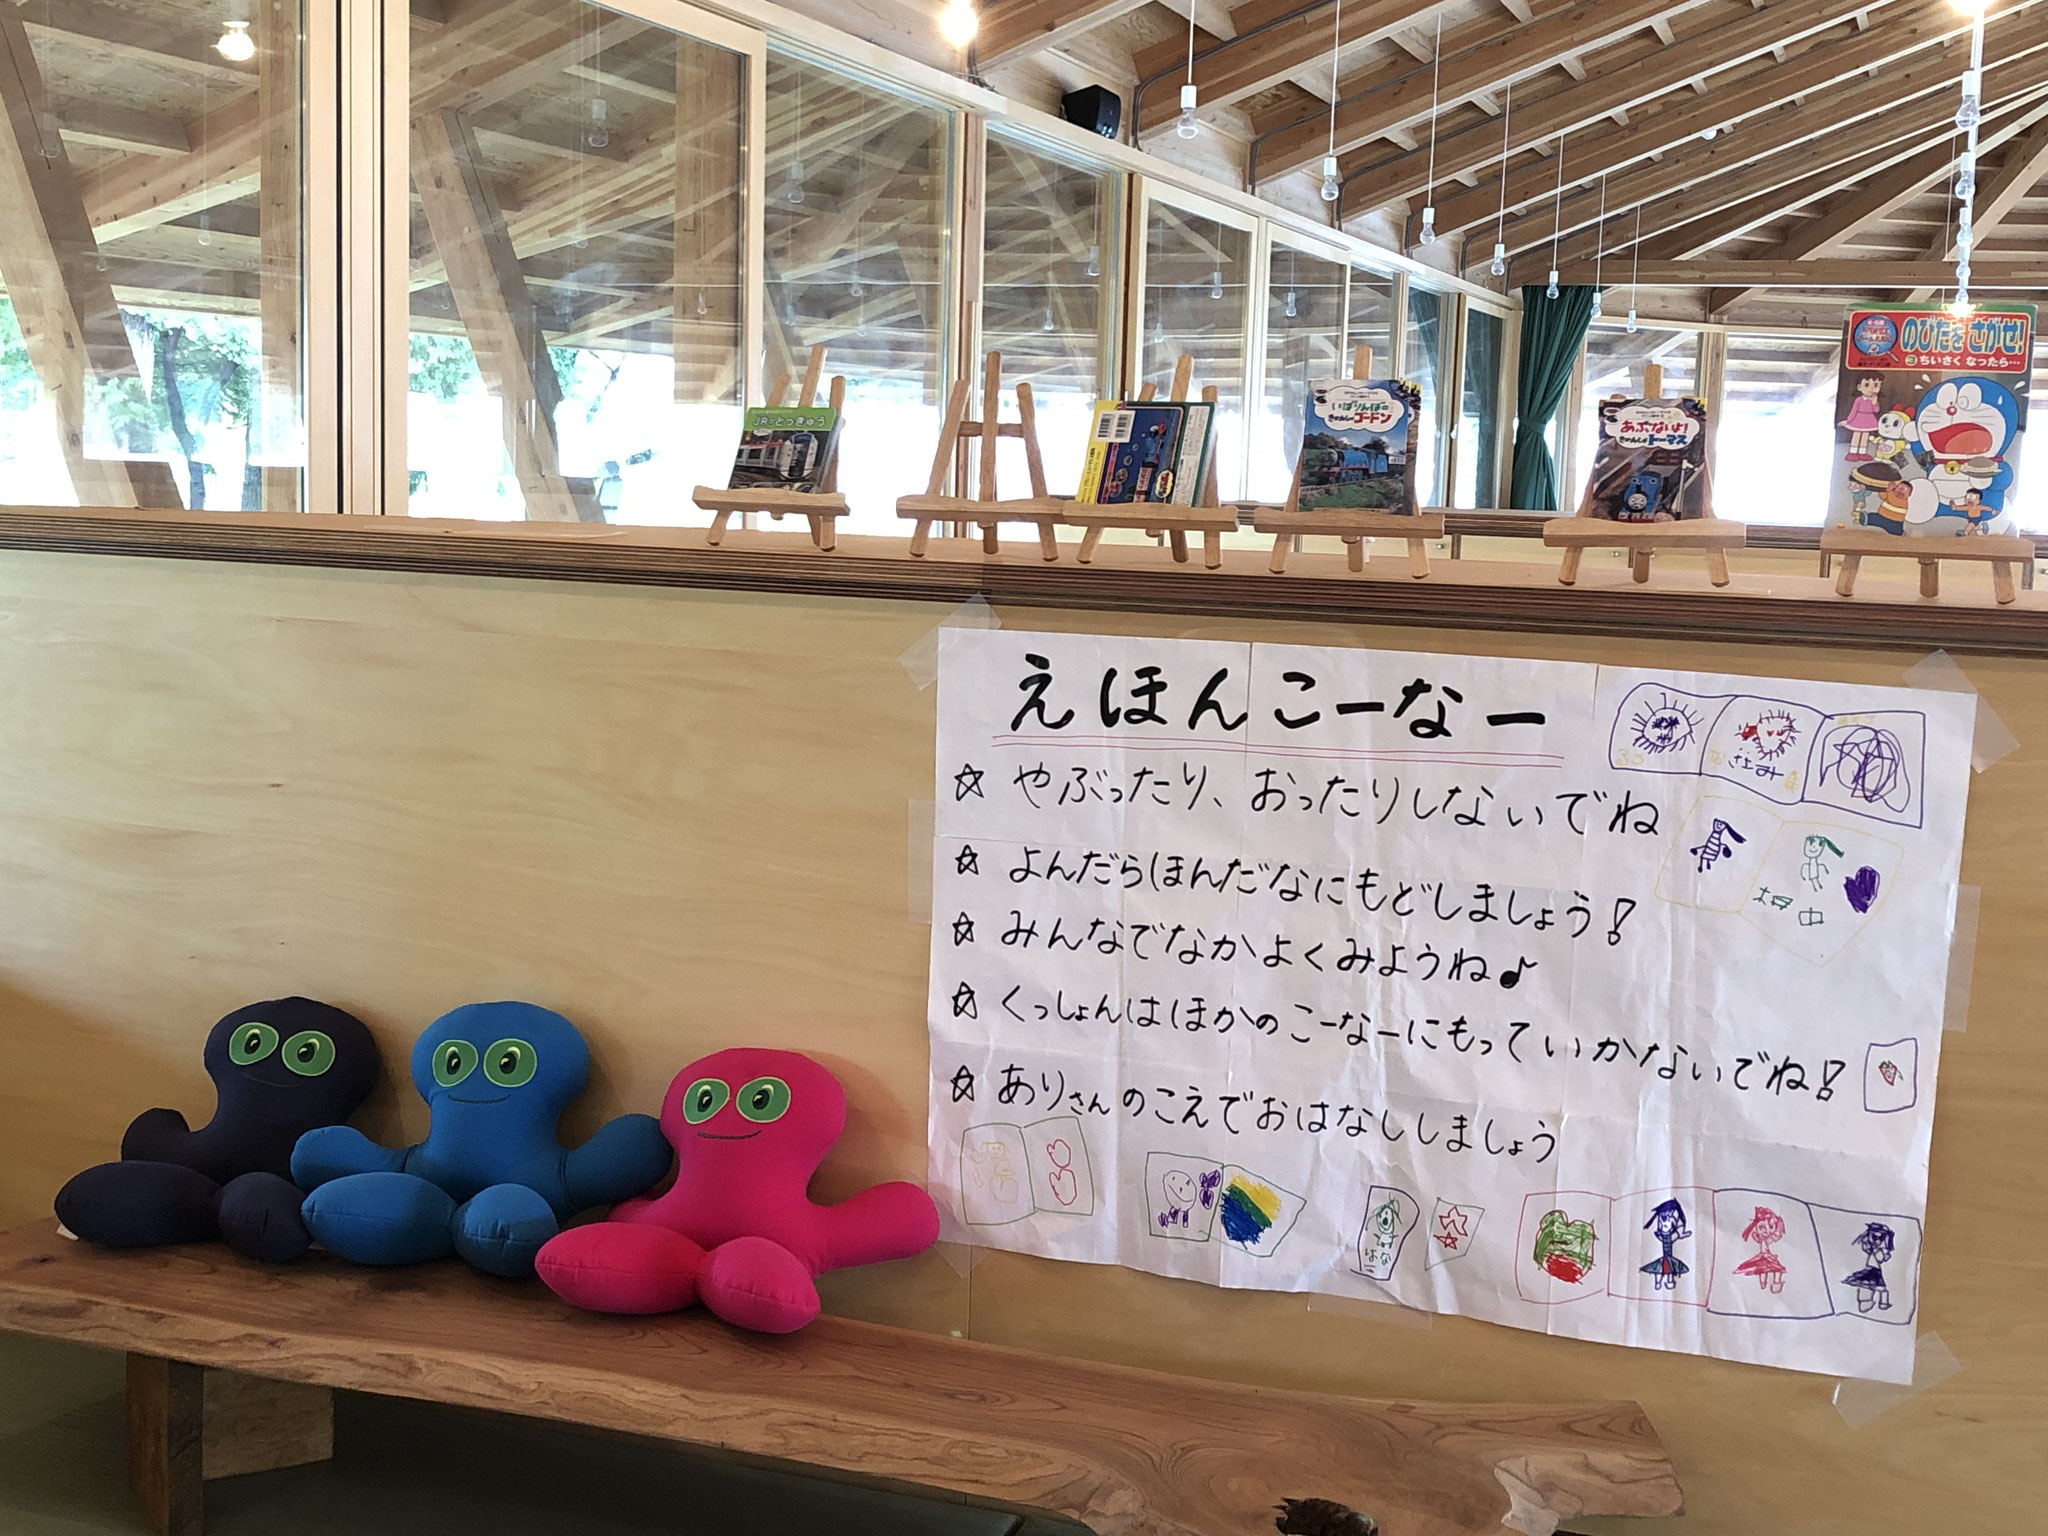 JRのとっきゅう
いばりんぼの
きかんしゃゴードン
あぶないよ!
きかんしゃトーマス
のびたを さがせ!
3 ちいさく なったら…
えほんこーなー
☆ やぶったり、おったりしないでね
☆ よんだらほんだなにもどしましょう!
☆ みんなでなかよくみようね♪
☆ くっしょんはほかのこーなーにもっていかないでね!
☆ ありさんのこえでおはなししましょう